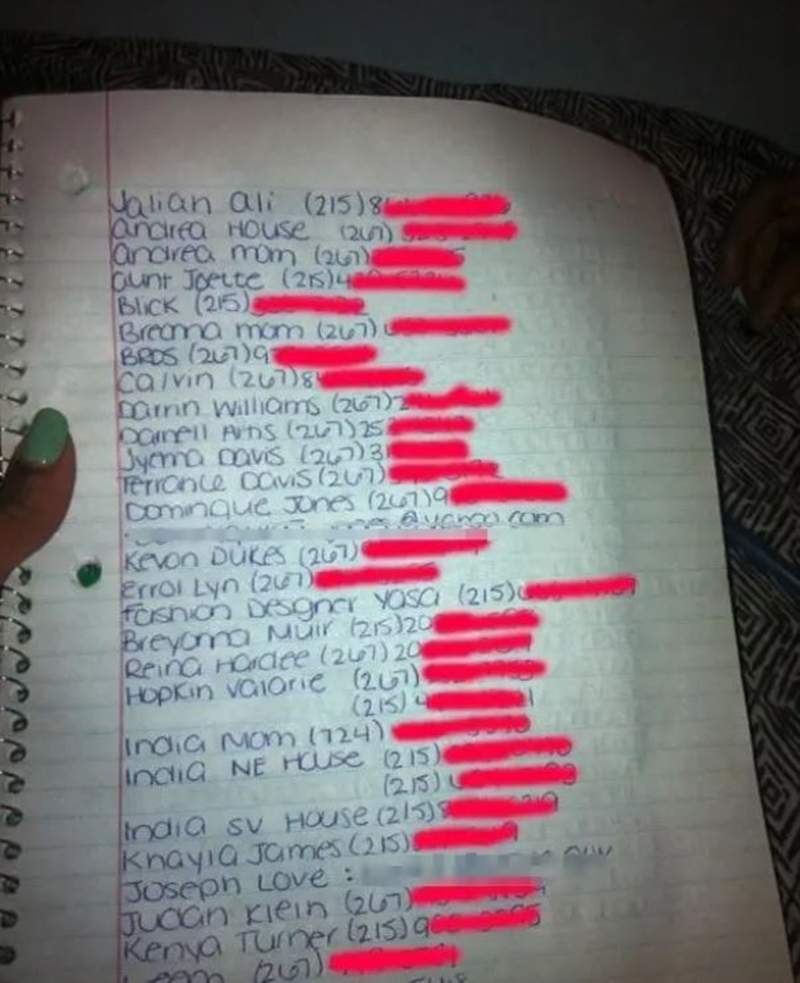 Jalian Ali (215)8
Andrea House (267)
Andrea mom (267)
Aunt Joette (215)4
Blick (215)
Breanna mom (267)
BROS (267)9
Calvin (267)8
Darrin Williams (267)2
Darnell Artis (267)25
Jyenna Davis (267)3
Terrance Davis (267)
Dominque Jones (267)9
@yahoo.com
Kevon Dukes (267)
Errol Lyn (267)
Fashion Designer Yasa (215)
Breyanna Muir (215)20
Reina Hardee (267)20
Hopkin Valarie (267)
(215)4
India Mom (724)
India NE House (215)
(215)
India SV House (215)8
Khayla James (215)
Joseph Love :
Judan Klein (267)
Kenya Turner (215)9
(267)